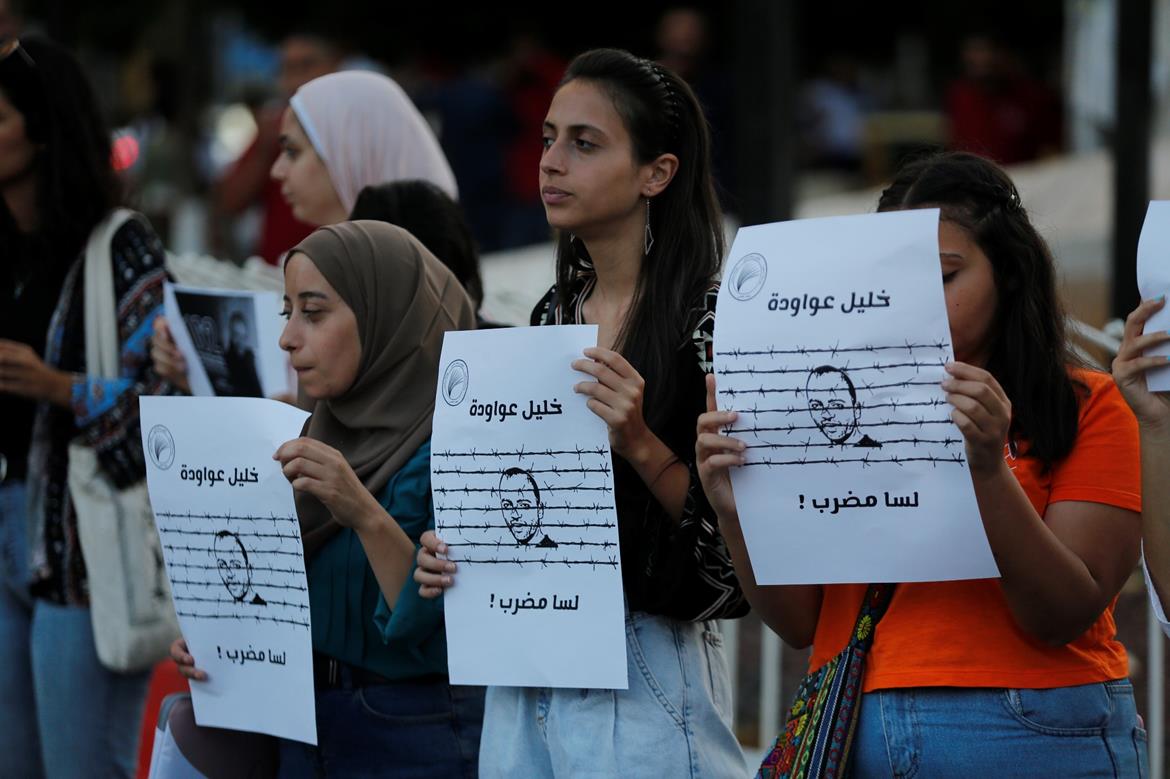 خليل عواودة
لسا مضرب !
خليل عواودة
لسا مضرب !
خليل عواودة
لسا مضرب !